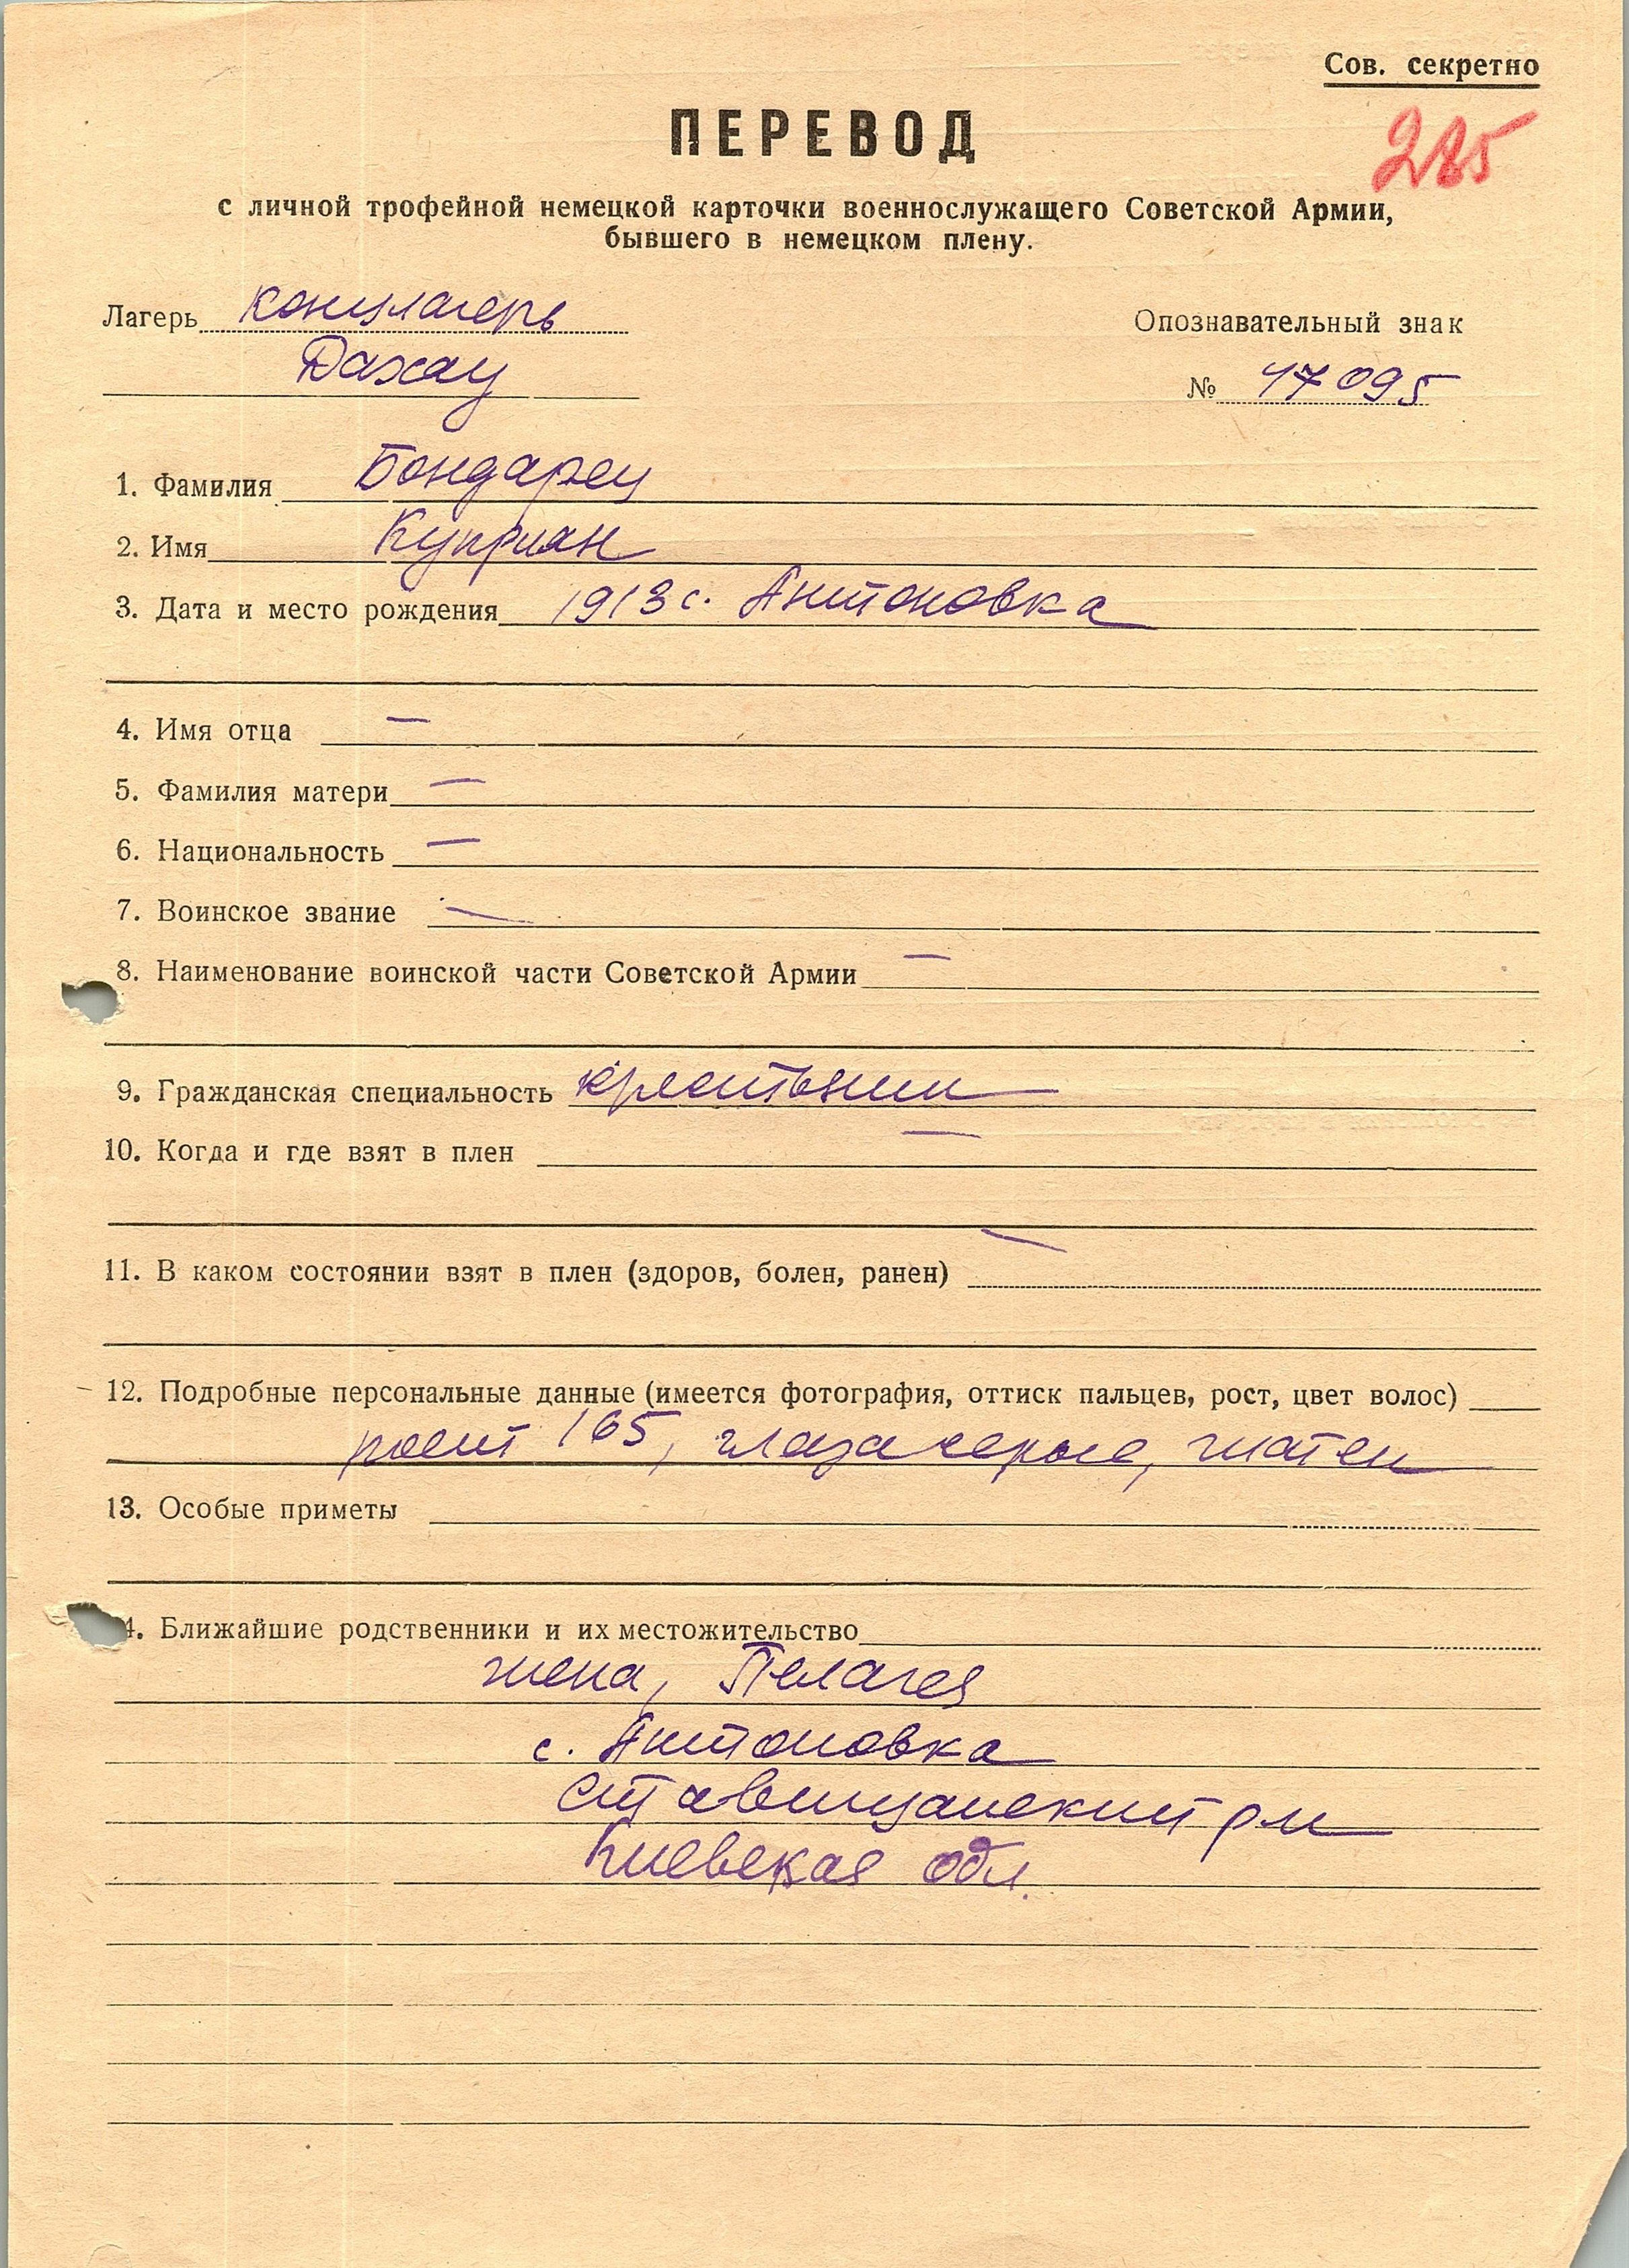 Сов. секретно
ПЕРЕВОД
с личной трофейной немецкой карточки военнослужащего Советской Армии,
бывшего в немецком плену.
Лагерь концлагерь
Дахау
Опознавательный знак
№ 47095
1. Фамилия Бондарец
2. Имя Куприян
3. Дата и место рождения 1913 с. Антоновка
4. Имя отца —
5. Фамилия матери —
6. Национальность —
7. Воинское звание —
8. Наименование воинской части Советской Армии —
9. Гражданская специальность крестьянин
10. Когда и где взят в плен —
11. В каком состоянии взят в плен (здоров, болен, ранен) —
12. Подробные персональные данные (имеется фотография, оттиск пальцев, рост, цвет волос)
рост 165, глаза серые, шатен
13. Особые приметы
4. Ближайшие родственники и их местожительство
жена, Пелагея
с. Антоновка
Ставищанский р-н
Киевская обл.